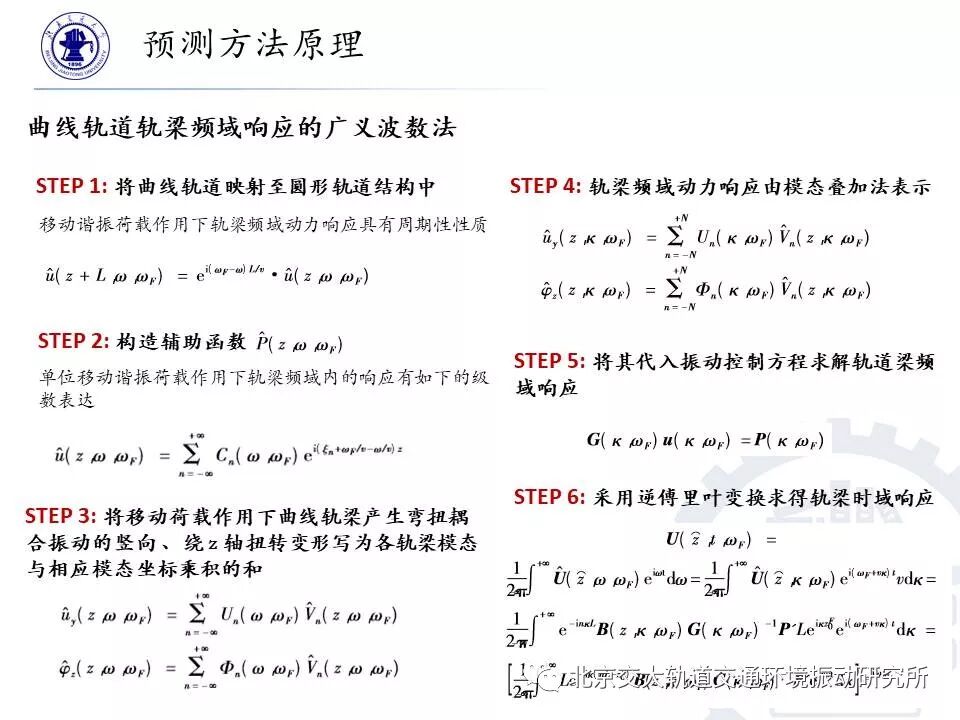 预测方法原理
曲线轨道轨梁频域响应的广义波数法
STEP 1: 将曲线轨道映射至圆形轨道结构中
移动谐振荷载作用下轨梁频域动力响应具有周期性性质
û( z + L ,ω ,ω_F ) = e^{i( ω_F−ω) L/v} · û( z ,ω ,ω_F )
STEP 2: 构造辅助函数 P̂( z ,ω ,ω_F )
单位移动谐振荷载作用下轨梁频域内的响应有如下的级
数表达
û( z ,ω ,ω_F ) = ∑_{n=−∞}^{+∞} C_n( ω ,ω_F ) e^{i( ξ_n+ω_F/v−ω/v) z}
STEP 3: 将移动荷载作用下曲线轨梁产生弯扭耦
合振动的竖向、绕z轴扭转变形写为各轨梁模态
与相应模态坐标乘积的和
û_y( z ,ω ,ω_F ) = ∑_{n=−∞}^{+∞} U_n( ω ,ω_F ) V̂_n( z ,ω ,ω_F )
φ̂_z( z ,ω ,ω_F ) = ∑_{n=−∞}^{+∞} Φ_n( ω ,ω_F ) V̂_n( z ,ω ,ω_F )
STEP 4: 轨梁频域动力响应由模态叠加法表示
û_y( z ,κ ,ω_F ) = ∑_{n=−N}^{+N} U_n( κ ,ω_F ) V̂_n( z ,κ ,ω_F )
φ̂_z( z ,κ ,ω_F ) = ∑_{n=−N}^{+N} Φ_n( κ ,ω_F ) V̂_n( z ,κ ,ω_F )
STEP 5: 将其代入振动控制方程求解轨道梁频
域响应
G( κ ,ω_F ) u( κ ,ω_F ) = P( κ ,ω_F )
STEP 6: 采用逆傅里叶变换求得轨梁时域响应
U( z̑ ,t ,ω_F ) =
1/2π ∫_{−∞}^{+∞} Û( z̑ ,ω ,ω_F ) e^{iωt}dω = 1/2π ∫_{−∞}^{+∞} Û( z̑ ,κ ,ω_F ) e^{i( ω_F+vκ) t} vdκ =
1/2π ∫_{−∞}^{+∞} e^{−inκL} B( z ,κ ,ω_F ) G( κ ,ω_F )^{−1} P´Le^{iκz_0^F} e^{i( ω_F+vκ) t} dκ =
北京交大轨道交通环境振动研究所